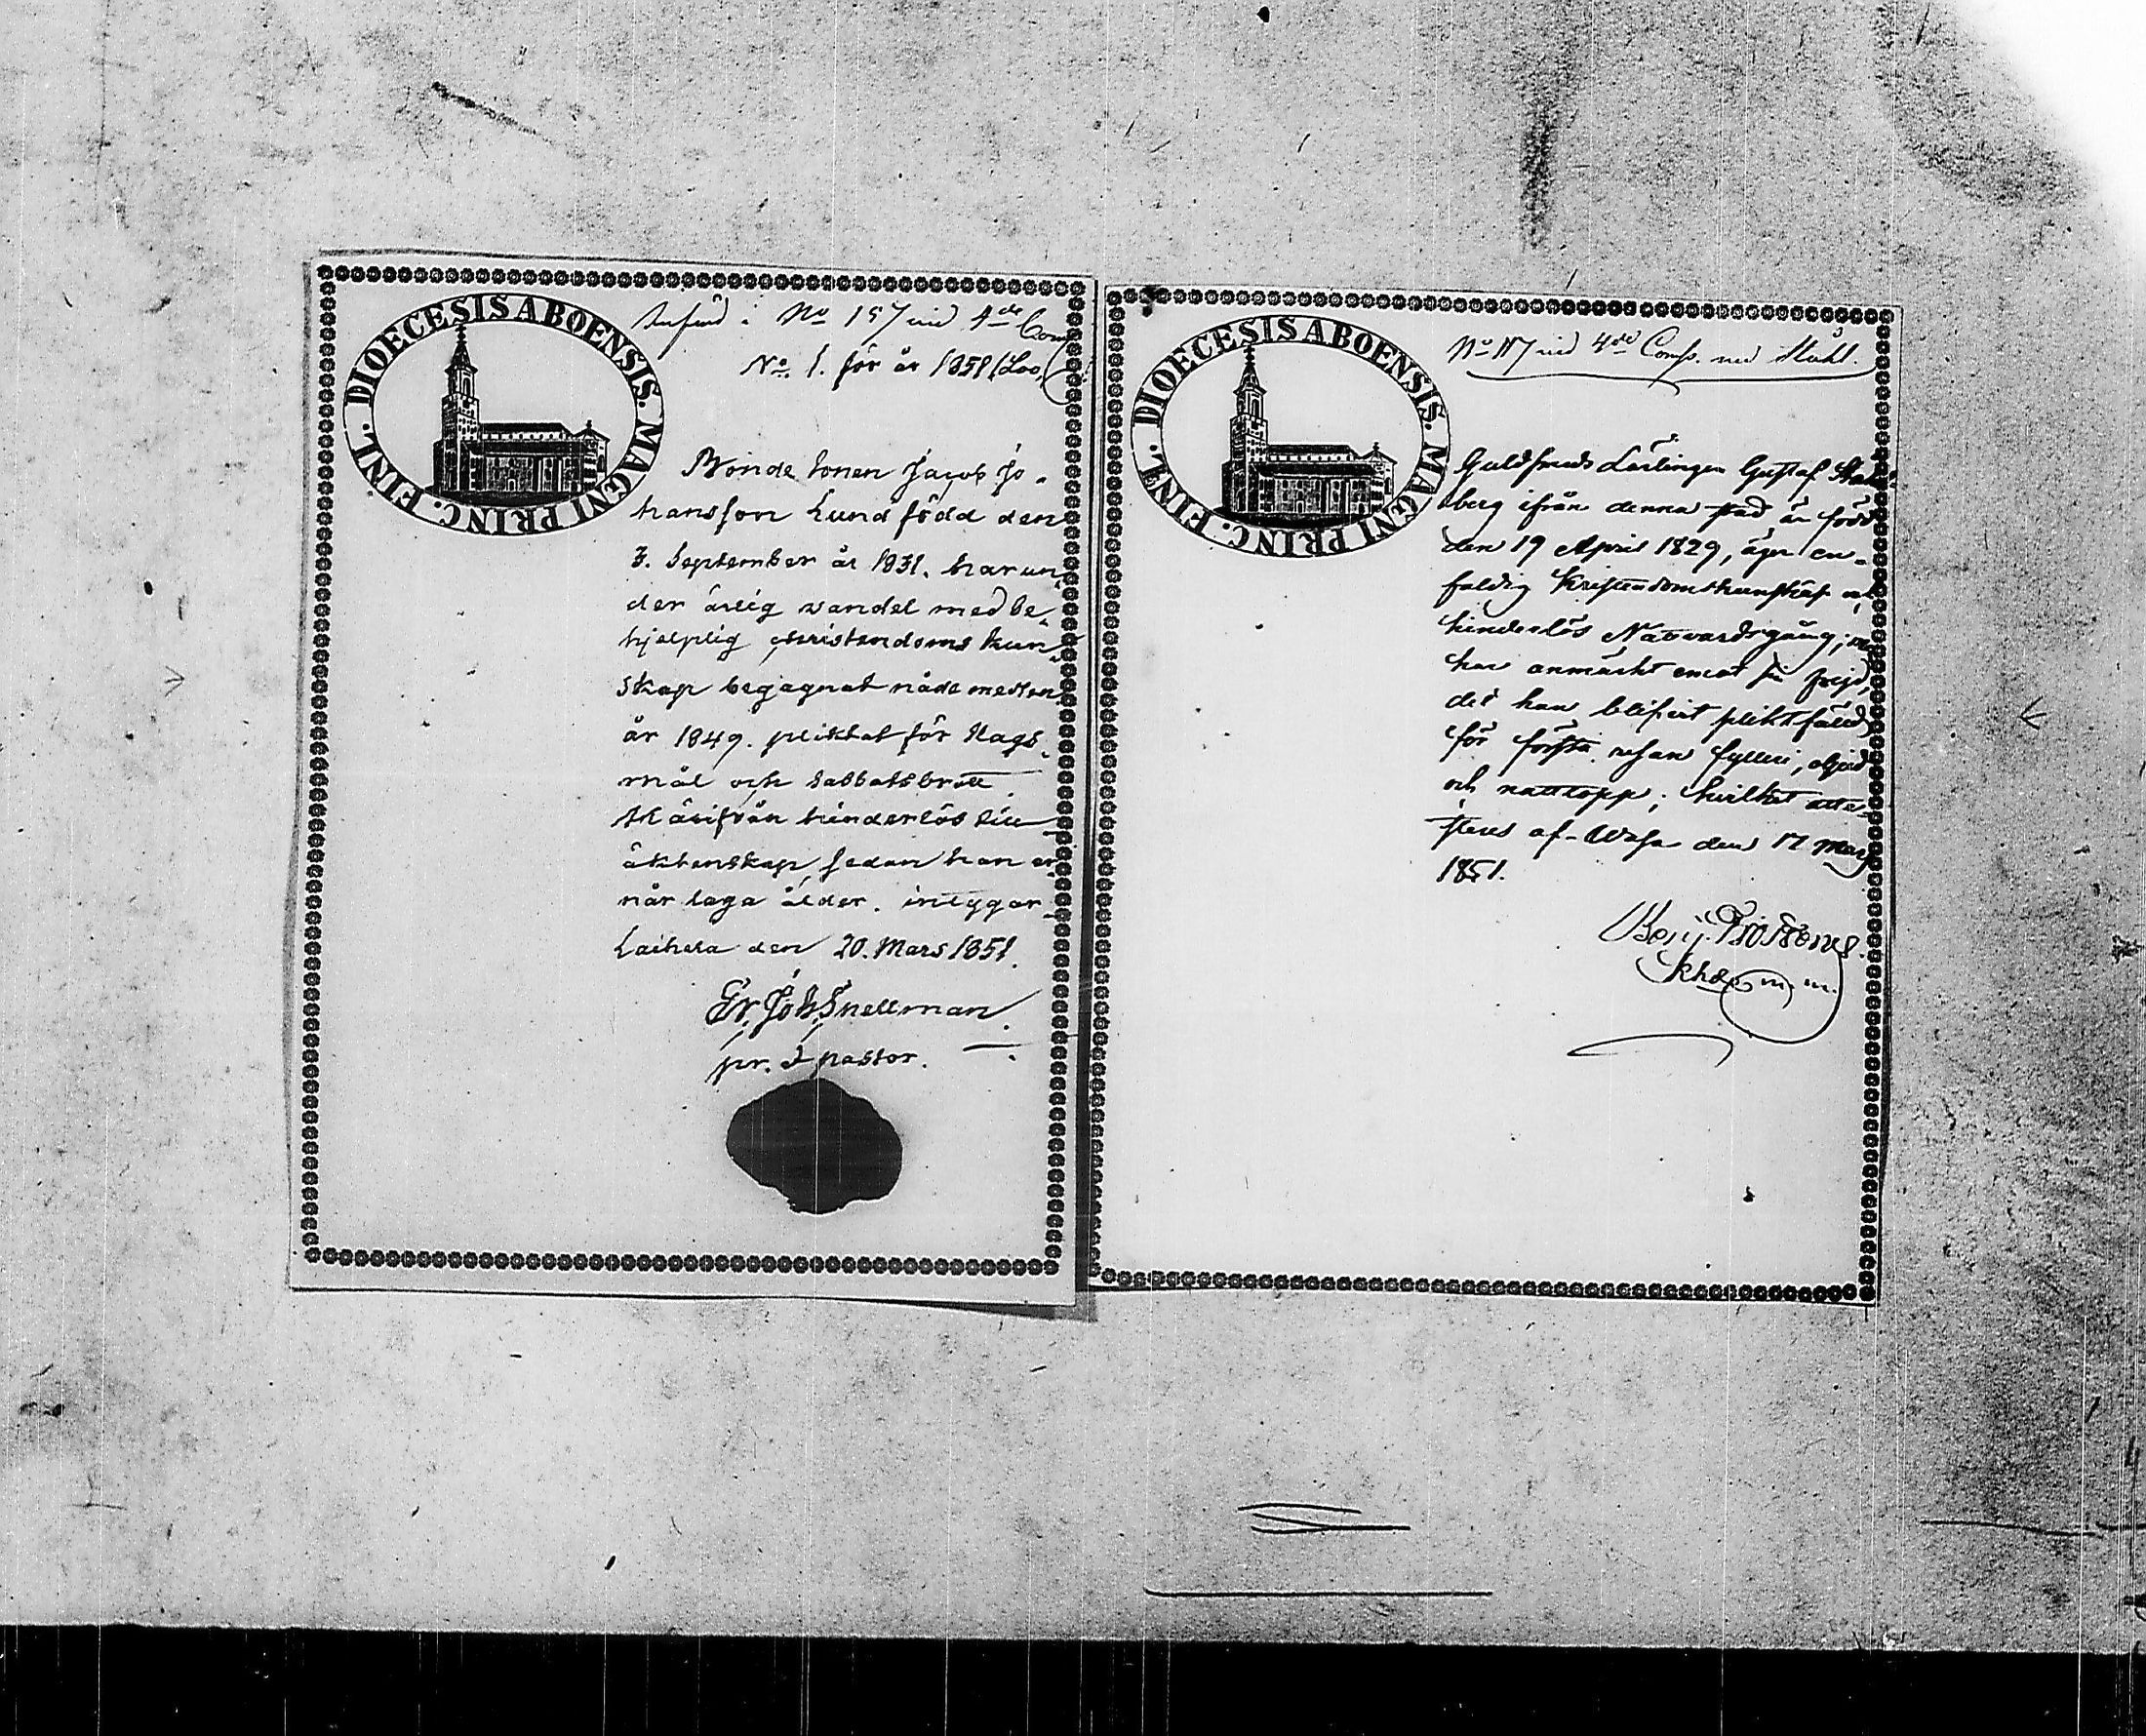 DIOECESIS ABOENSIS. MAGNI PRINC. FINL.
i No 157 vid 4de Comp
No. 1. för år 1851
Bonde Sonen Jacob Jo-
hansson Lund född den
3. September år 1831. har un-
der ärlig vandel med be-
hjelplig christendoms kun-
skap begagnat nådemedlen
år 1849. pliktat för slags-
mål och sabbatsbrott.
Är härifrån hinderlös till
äktenskap, sedan han er-
når laga ålder. intygar
Laihela den 20. Mars 1851.
Gr. Joh. Snellman
pr. pastor.
DIOECESIS ABOENSIS. MAGNI PRINC. FINL.
No vid 4de Comp. med
Guldsmeds Lärlingen Gustaf
berg ifrån denna stad är född
den 19 April 1829, äger en-
faldig Kristendomskunskap och
hinderlös Nattvardsgång;
har anmärkt emot sin frejd,
det han blifvit pliktfäld
för första resan fylleri, oljud
och nattlopp; hvilket atte-
steras af Wasa den 17 Mars
1851.
Khde m. m.